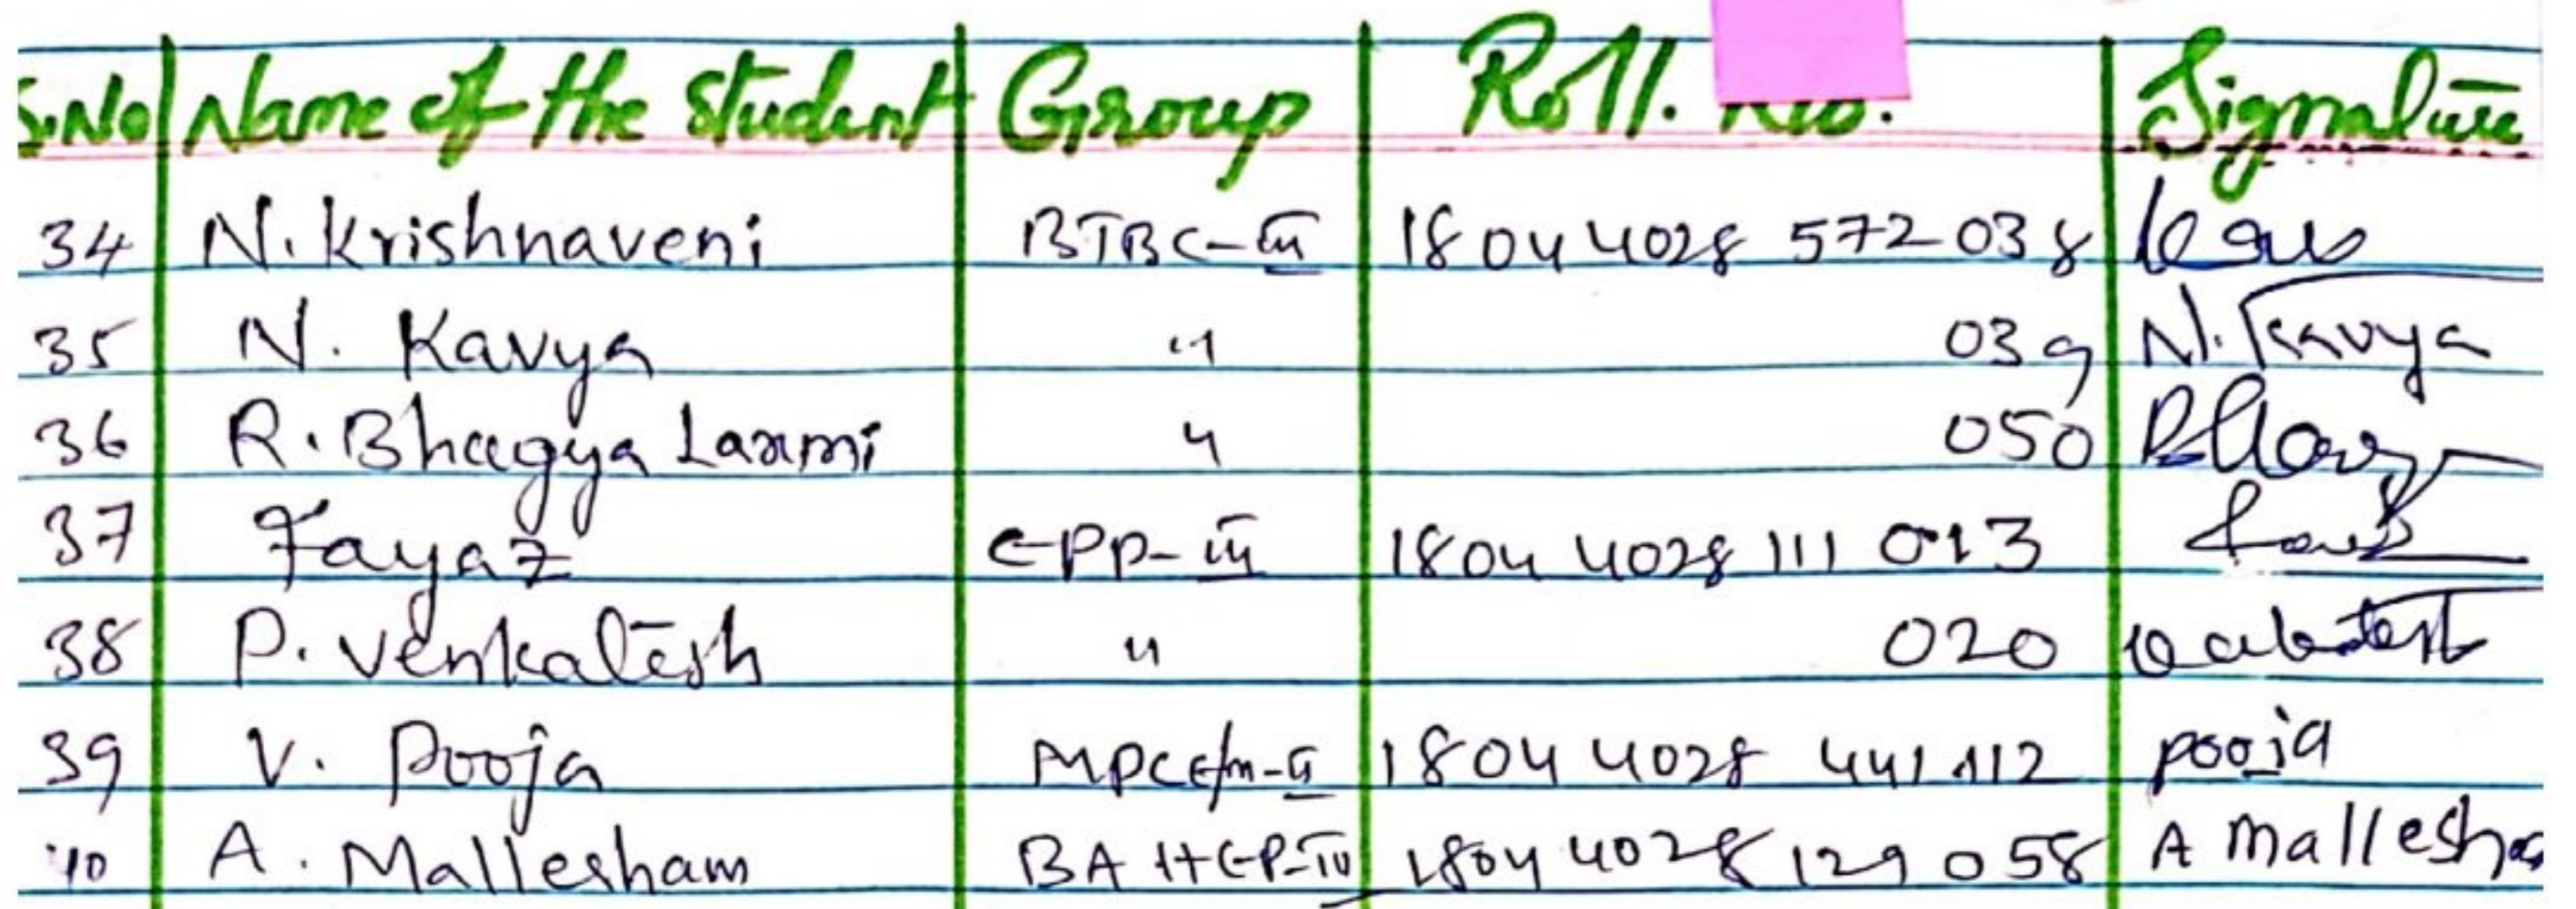 S.No Name of the Student Group Roll. No. Signature
34 N. Krishnaveni BTBC-III 1804 4028 572 038
35 N. Kavya " 039 N. Kavya
36 R. Bhagya Laxmi " 050
37 Fayaz EPP-III 1804 4028 111 013
38 P. Venkatesh " 020
39 V. Pooja MPC E/m-II 1804 4028 441 112 pooja
40 A. Mallesham BA HEP-III 1804 4028 129 058 A Mallesham